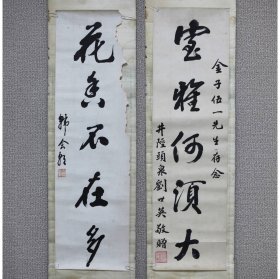 金子伍一先生存念
室雅何須大
井陘頭泉劉世英敬贈
花香不在多